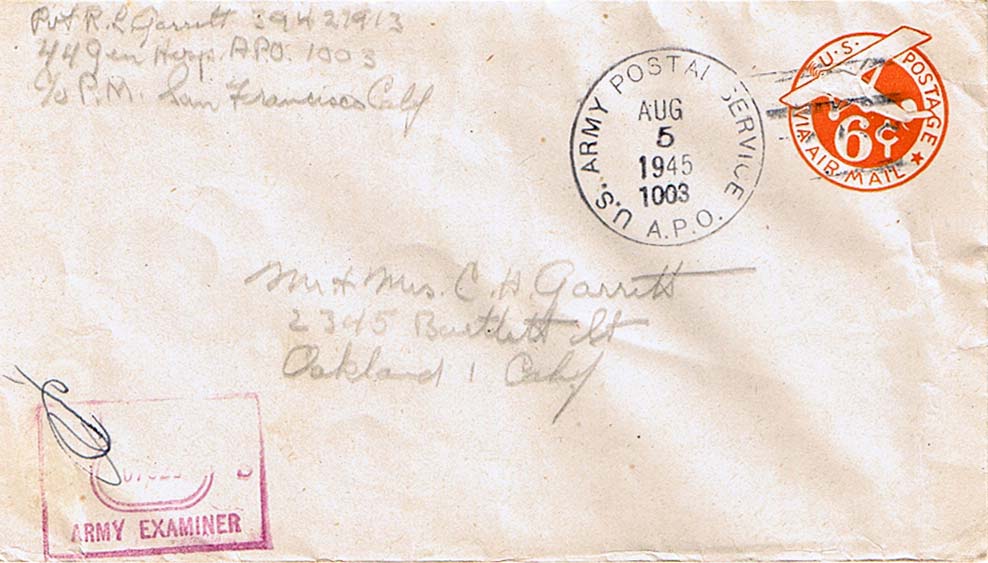 Pvt R. L. Garrett 39421913
44 Gen Hosp. A.P.O. 1003
c/o P.M. San Francisco Calif
U.S. ARMY POSTAL SERVICE
AUG
5
1945
1003
A.P.O.
U.S. POSTAGE
6¢
VIA AIR MAIL
Mr + Mrs. C. H. Garrett
2345 Bartlett St
Oakland 1 Calif
ARMY EXAMINER